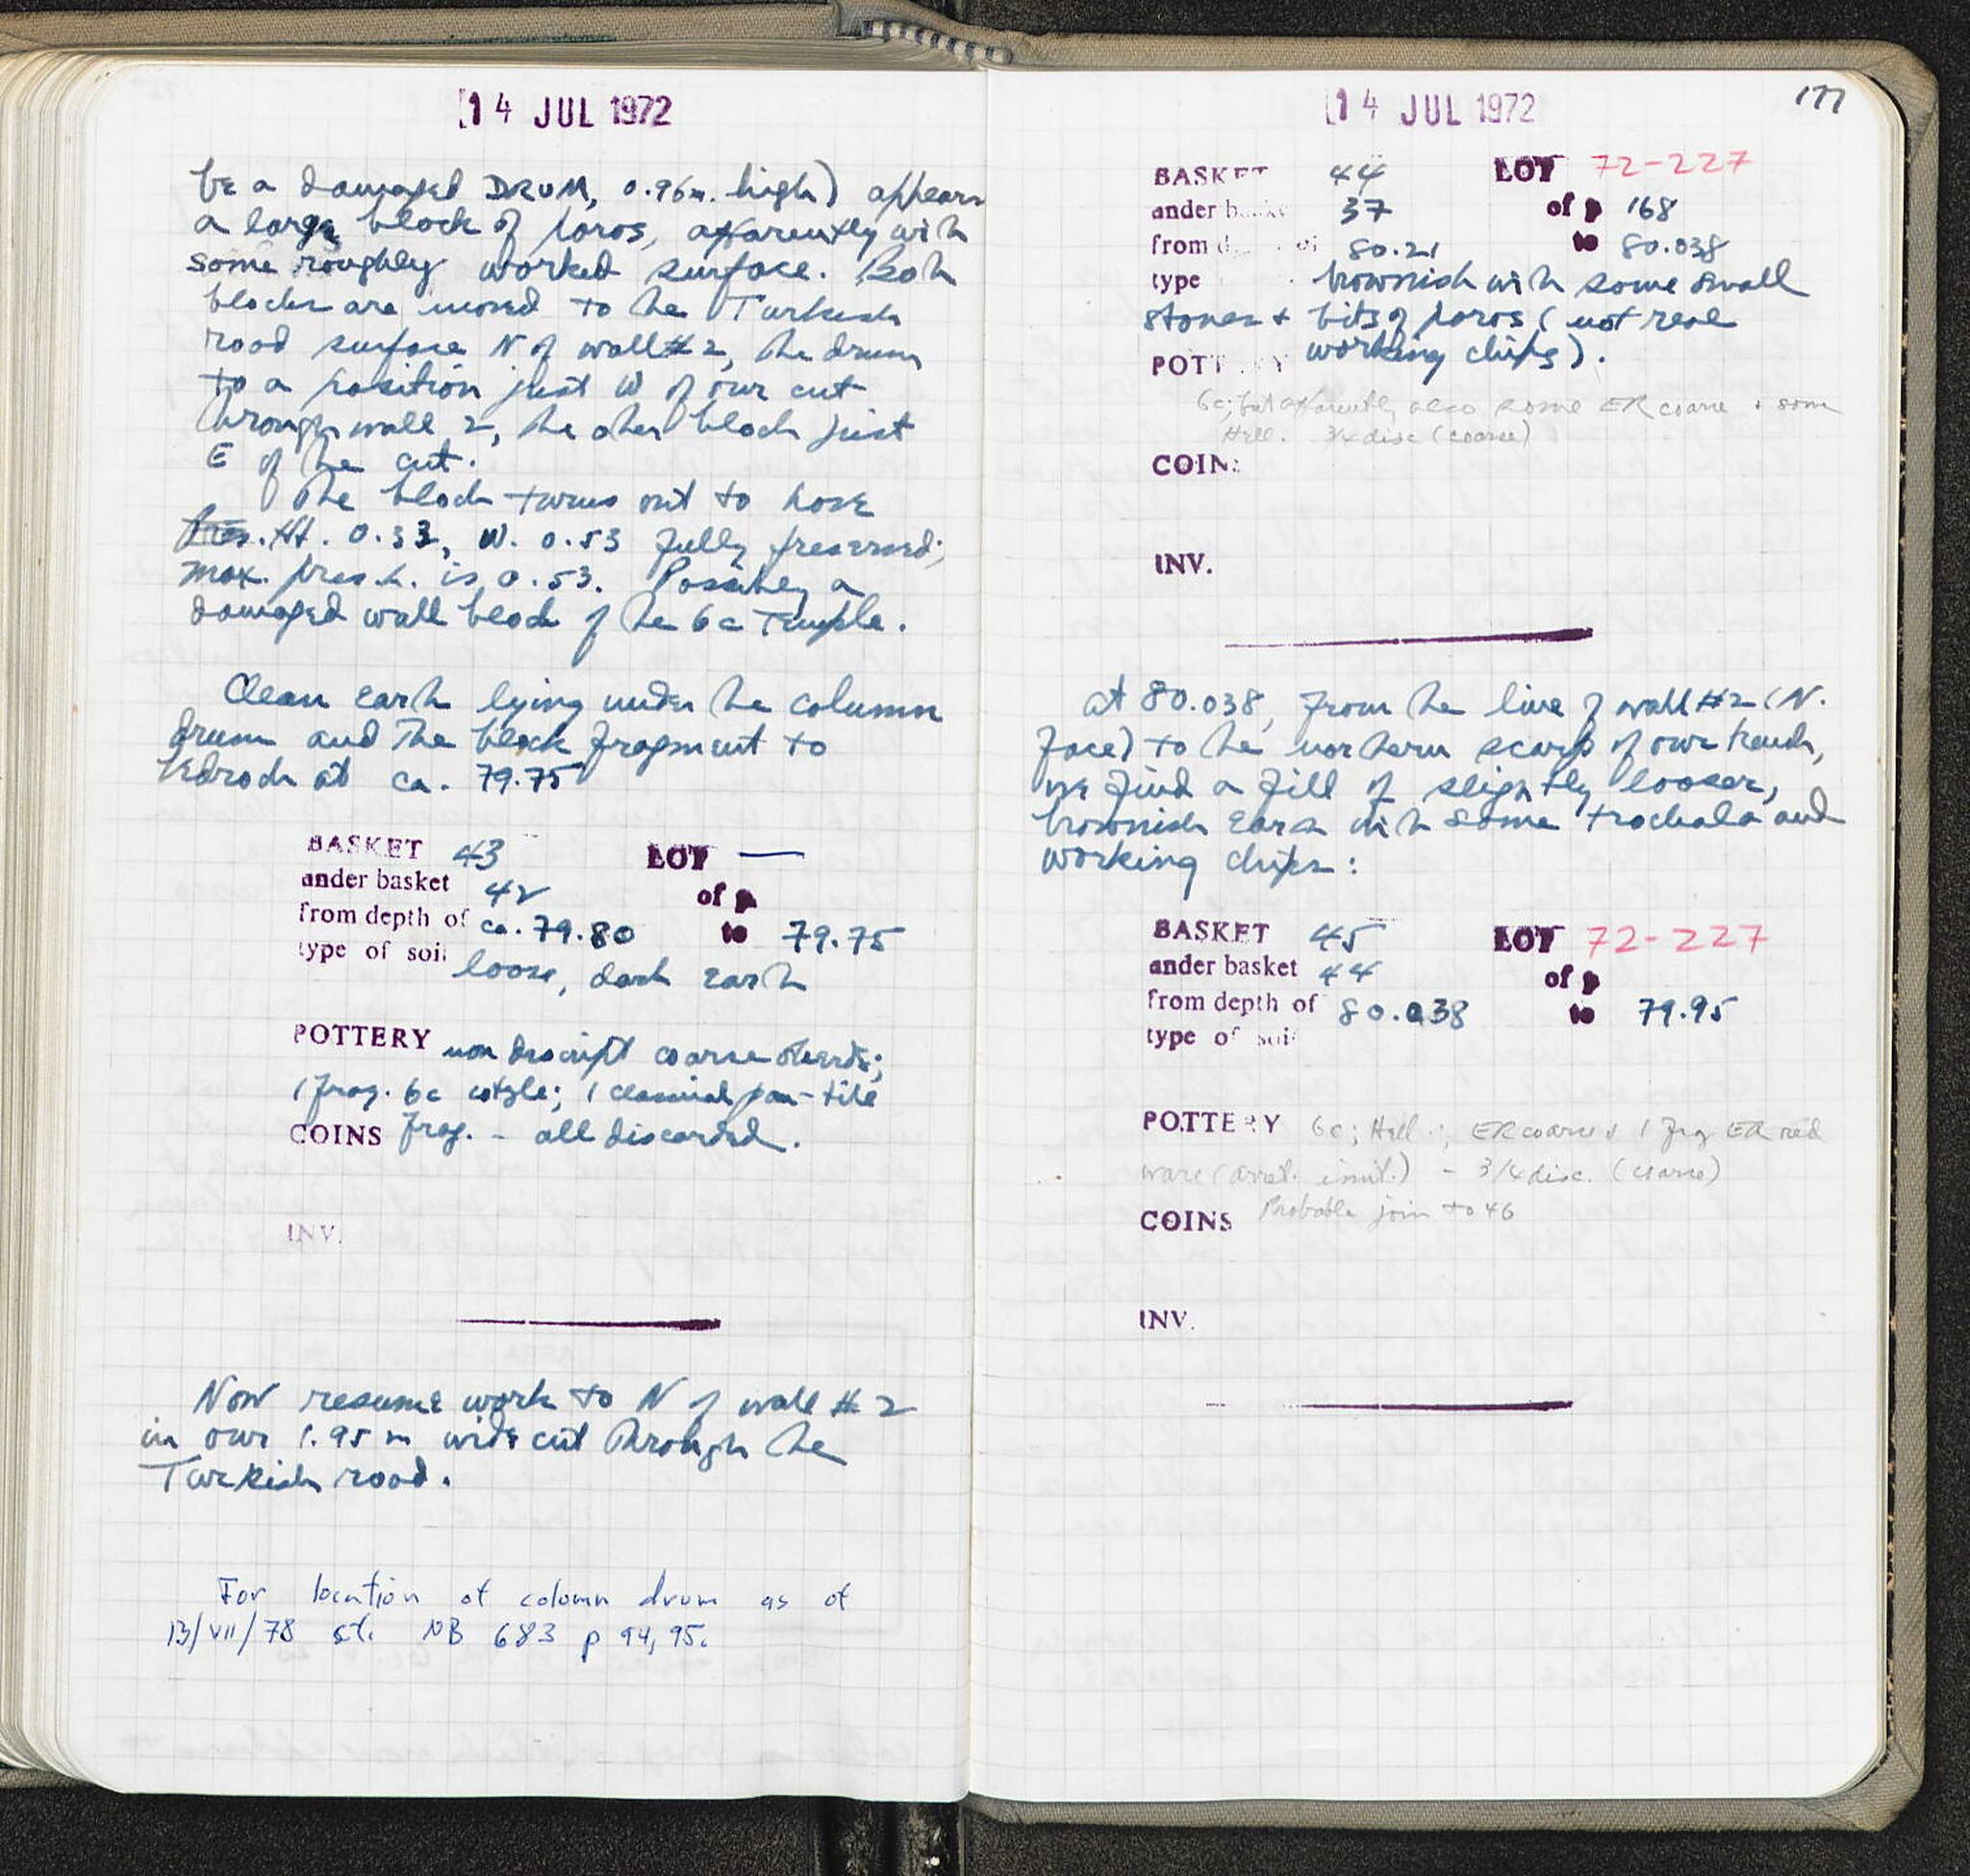 14 JUL 1972
be a damaged DRUM, 0.96m. high) appears
a large block of poros, apparently with
some roughly worked surface. Both
blocks are moved to the Turkish
road surface N of wall #2, the drum
to a position just W of our cut
through wall 2, the other block just
E of the cut.
The block turns out to have
Pres. Ht. 0.33, W. 0.53 fully preserved;
max. pres. L. is 0.53. Possibly a
damaged wall block of the 6c Temple.
Clean earth lying under the column
drum and the block fragment to
bedrock at ca. 79.75
BASKET 43 LOT —
under basket 42 of p
from depth of ca. 79.80 to 79.75
type of soil loose, dark earth
POTTERY non descript coarse sherds;
1 frag. 6c kotyle; 1 classical pan-tile
COINS frag. - all discarded.
INV.
Now resume work to N of wall #2
in our 1.95 m wide cut through the
Turkish road.
For location of column drum as of
13/VII/78 NB 683 p 94, 95.
14 JUL 1972
177
BASKET 44 LOT 72-227
under basket 37 of p 168
from depth of 80.21 to 80.038
type brownish with some small
stones + bits of poros (not real
POTTERY working chips).
6c; but apparently also some ER coarse + some
Hell. 3/4 disc (coarse)
COINS
INV.
at 80.038, from the line of wall #2 (N.
face) to the northern scarp of our trench,
we find a fill of slightly looser,
brownish earth with some trochala and
working chips:
BASKET 45 LOT 72-227
under basket 44 of p
from depth of 80.038 to 79.95
type of soil
POTTERY 6c; Hell.; ER coarse & 1 frag ER red
ware (arret. imit.) - 3/4 disc. (coarse)
COINS Probable join to 46
INV.